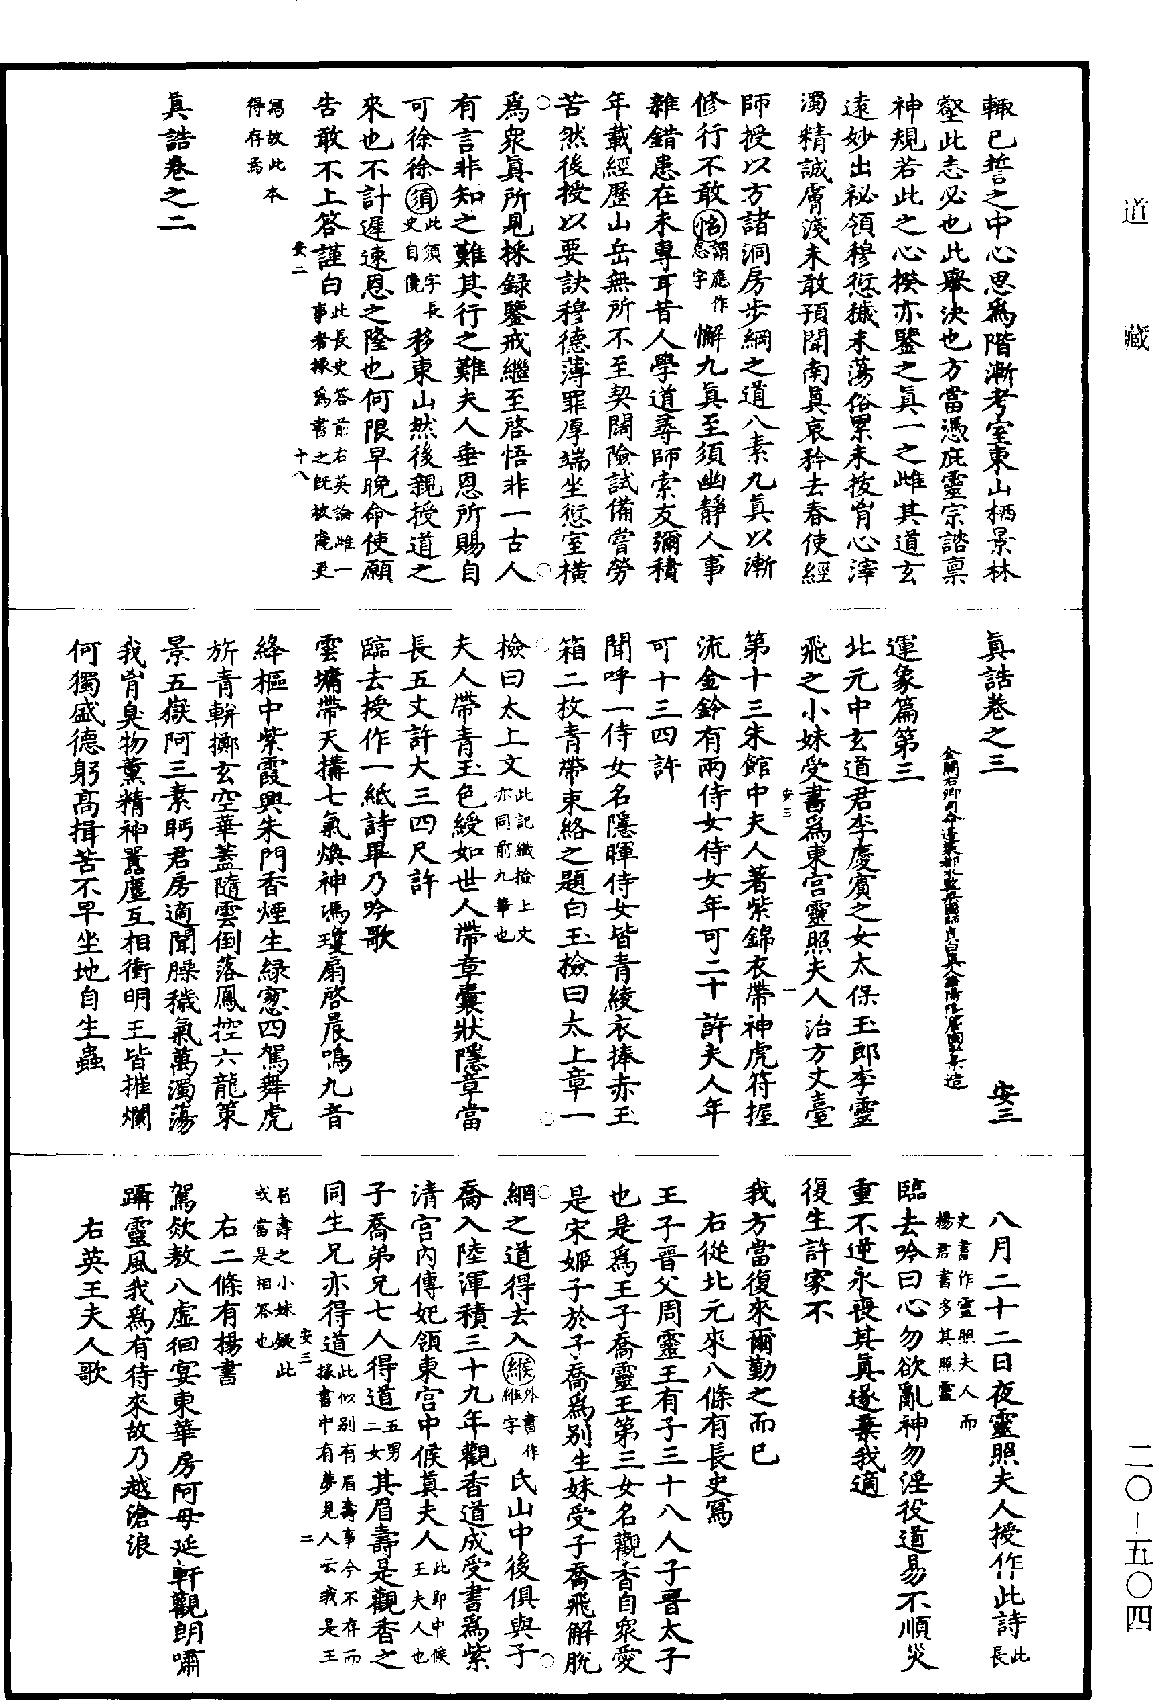 道藏
二〇-五〇四
輙已誓之中心思爲階漸考室東山栖景林
壑此志必也此舉決也方當憑庇靈宗諮禀
神規若此之心揆亦鑒之眞一之雌其道玄
遠妙出祕領穆愆穢未蕩俗累未拔胷心滓
濁精誠膚淺未敢預聞南眞哀矜去春使經
師授以方諸洞房步綱之道八素九眞以漸
修行不敢怠謂應作怠字懈九眞至須幽靜人事
雜錯患在未專耳昔人學道尋師索友彌積
年載經歷山岳無所不至契闊險試備嘗勞
苦然後授以要訣穆德薄罪厚端坐愆室橫
爲衆眞所見採録鑒戒繼至啓悟非一古人
有言非知之難其行之難夫人垂恩所賜自
可徐徐須此須字長史自儳移東山然後親授道之
來也不計遲速恩之隆也何限早晚命使願
告敢不上答謹白此長史答前右英論雌一事者掾爲書之旣被㡣更
安二 十八
寫故此本
得存焉
眞誥卷之二
眞誥卷之三 安三
運象篇第三
北元中玄道君李慶賓之女太保玉郎李靈
飛之小妹受書爲東宫靈照夫人治方丈臺
安三 一
第十三朱館中夫人著紫錦衣帶神虎符握
流金鈴有兩侍女侍女年可二十許夫人年
可十三四許
聞呼一侍女名隱暉侍女皆青綾衣捧赤玉
箱二枚青帶束絡之題白玉檢曰太上章一
檢曰太上文此記緘檢上文亦同前九華也
夫人帶青玉色綬如世人帶章囊狀隱章當
長五丈許大三四尺許
臨去授作一紙詩畢乃吟歌
雲墉帶天搆七氣煥神馮瓊扇啓晨鳴九音
絳樞中紫霞興朱門香煙生緑窻四駕舞虎
旂青軿擲玄空華蓋隨雲倒落鳳控六龍策
景五嶽阿三素眄君房適聞臊穢氣萬濁蕩
我胷臭物薰精神嚚塵互相衝明王皆摧爛
何獨盛德躬高揖苦不早坐地自生蟲
八月二十二日夜靈照夫人授作此詩此長
史書作靈照夫人而
楊君書多其照靈
臨去吟曰心勿欲亂神勿淫役道易不順災
重不逆永喪其眞遂棄我適
復生許家不
我方當復來爾勤之而已
右從北元來八條有長史寫
王子晋父周靈王有子三十八人子晋太子
也是爲王子喬靈王第三女名觀香自衆愛
是宋姬子於子喬爲别生妹受子喬飛解脫
網之道得去入緱外書作緱字氏山中後俱與子
喬入陸渾積三十九年觀香道成受書爲紫
清宫内傳妃領東宫中候眞夫人此即中候王夫人也
子喬弟兄七人得道五男二女其眉壽是觀香之
同生兄亦得道此似别有眉壽事今不存而掾書中有夢見人云我是王
安三 二
眉壽之小妹疑此
或當是相答也
右二條有楊書
駕欻敖八虚徊宴東華房阿母延軒觀朗嘯
躡靈風我爲有待來故乃越滄浪
右英王夫人歌